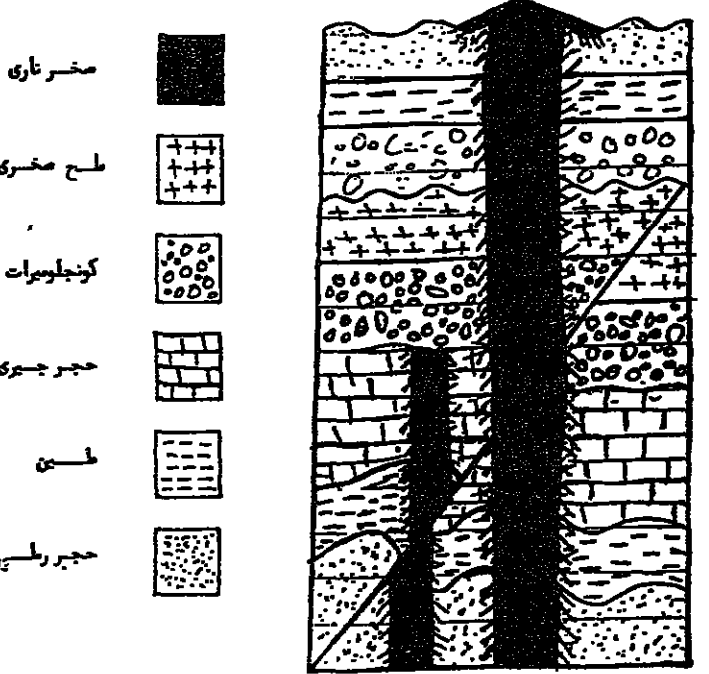 صخر ناري
ملح صخري
كونجلوميرات
حجر جيري
طين
حجر رملي